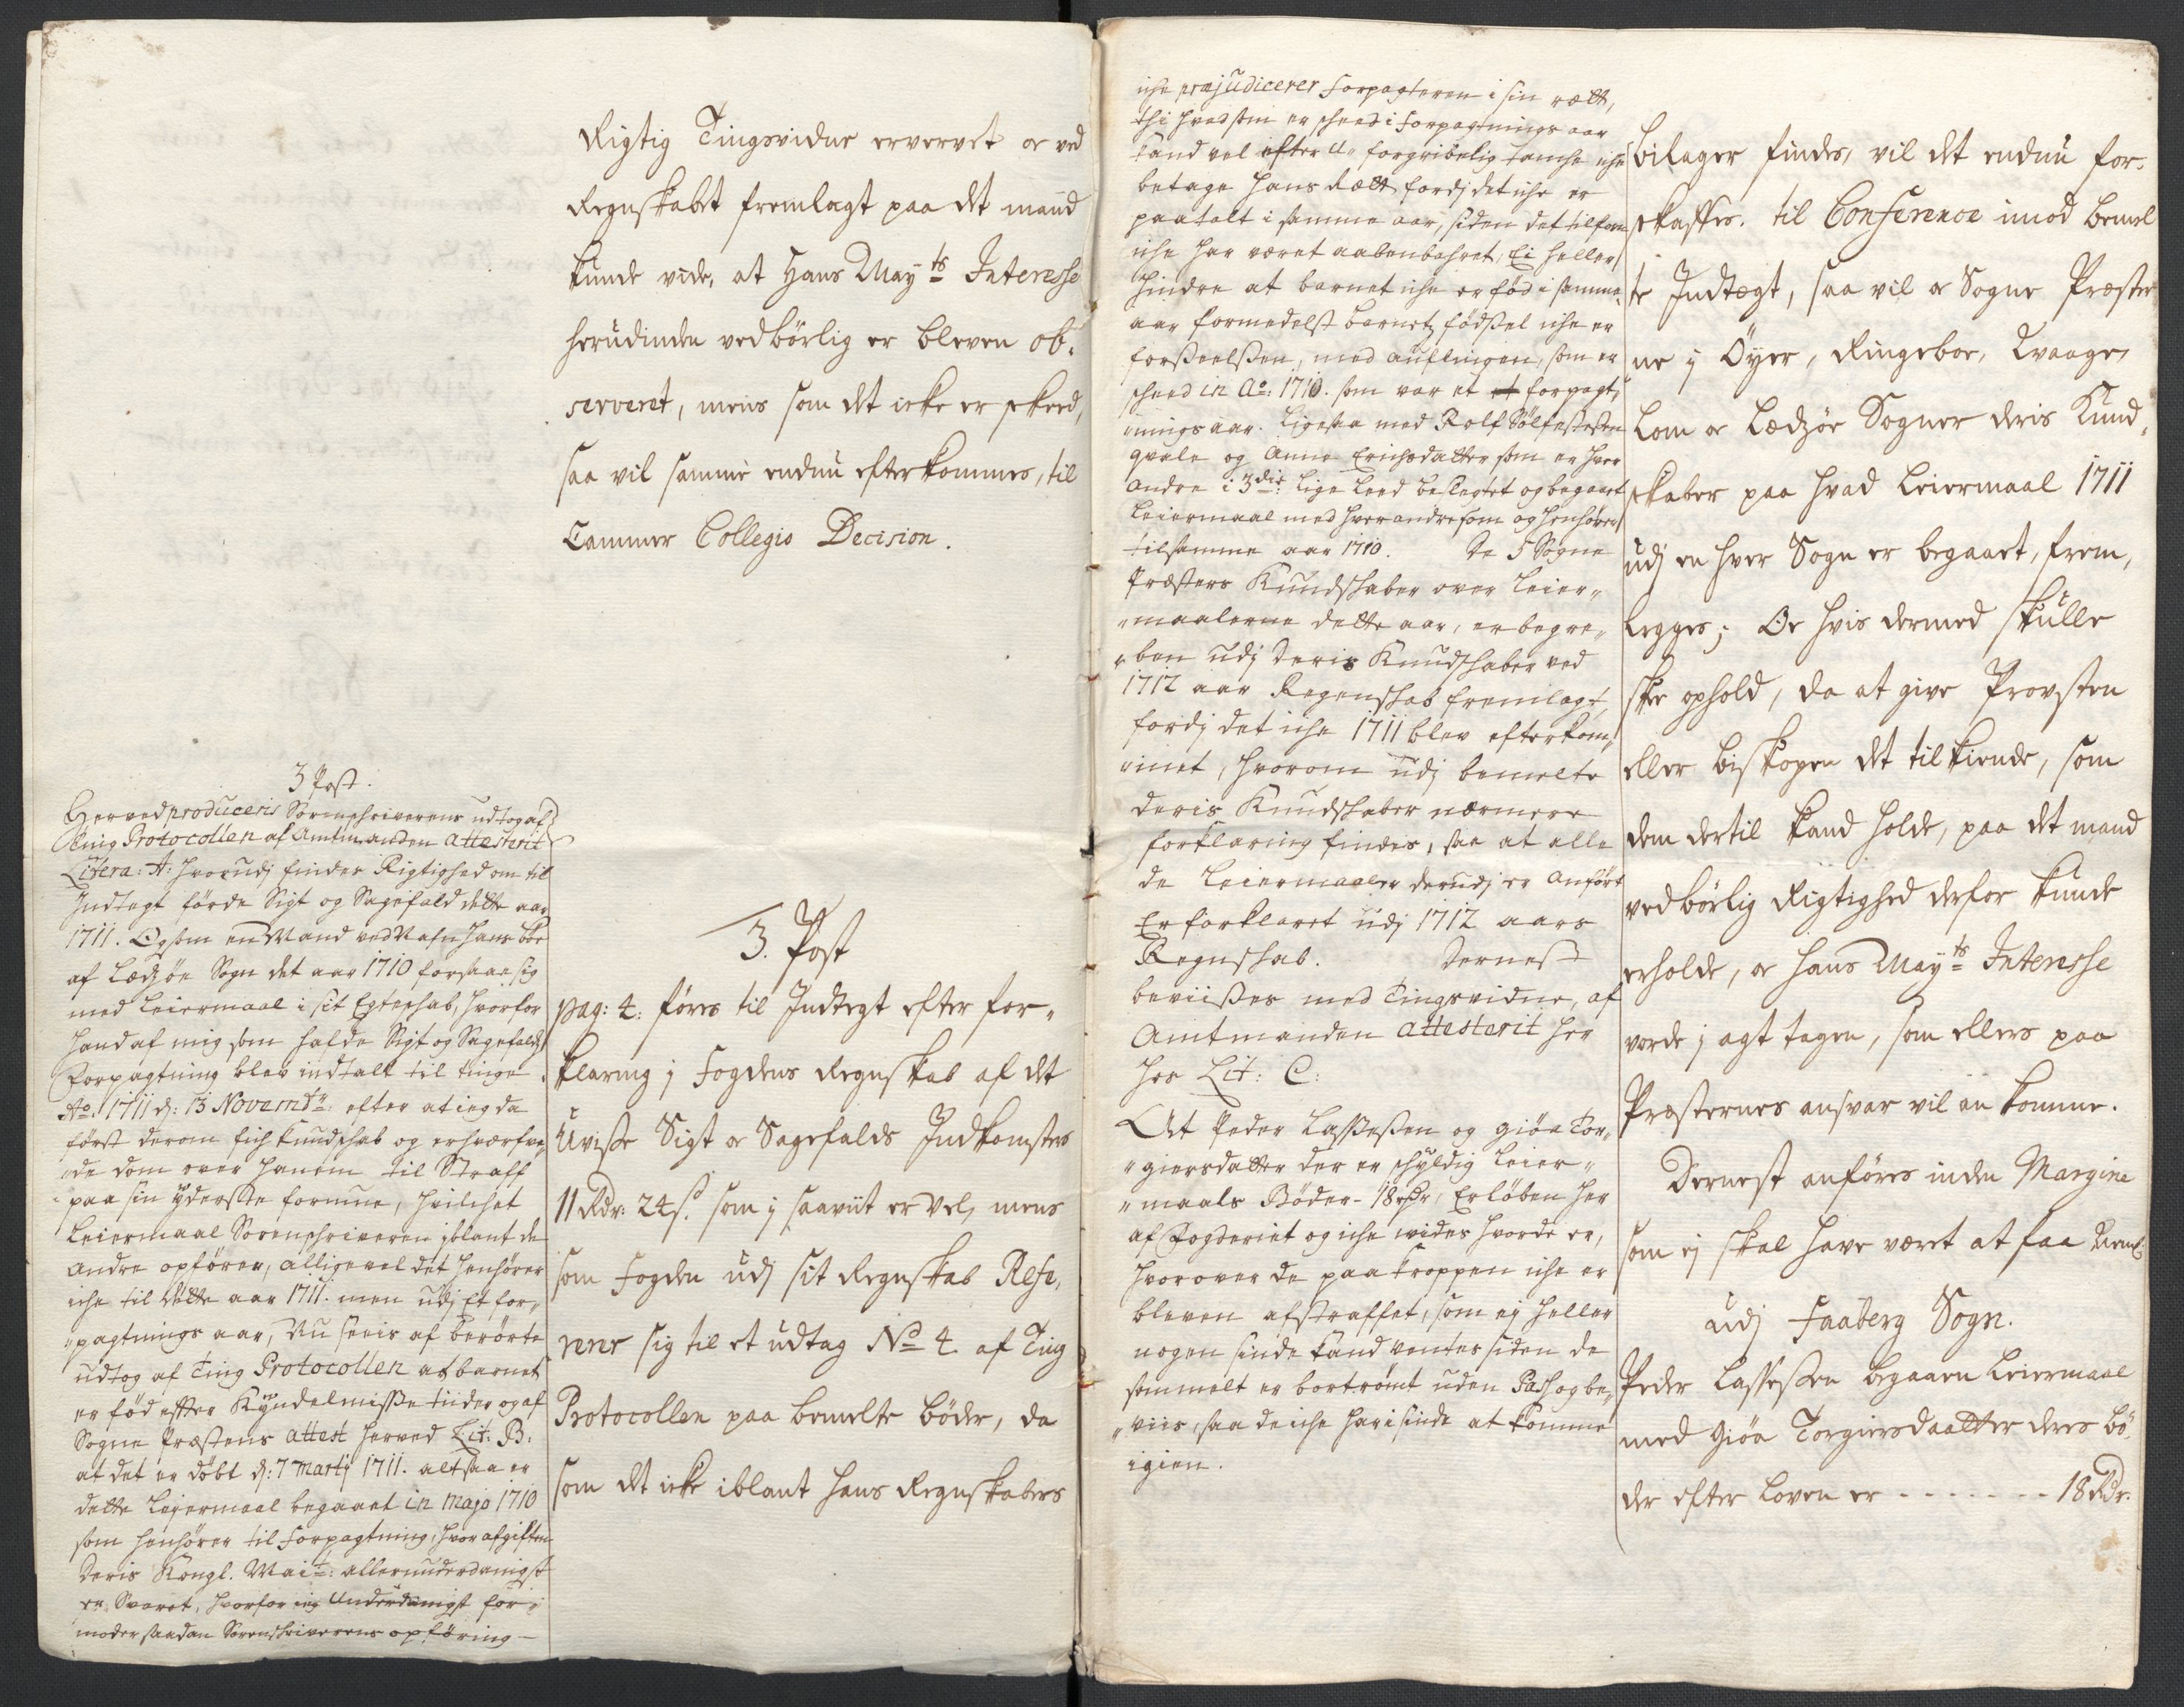 Rigtig Tingsvidne ervervet oc ved
Regnskabet fremlagt paa det mand
kunde vide, at Hans Mayts Interesse
herudinden ved børlig er bleven ob,
serveret, mens som det icke er skeed,
saa vil samme endnu efterkommes, til
Cammer Collegio Decision.
3 Post.
Herved produceris Sorenschriverens udtog af
Ting Protocollen af Amtmanden attesterit
Litera: A: hvorudj findes Rigtighed om til
Indtegt førde Sigt og Sagefald dette aar
1711. Og som en Mand ved Nafn Hans Boe
af Lædzøe Sogn det aar 1710 forsaae sig
med Leiermaal i sit Egteschab, hvorfor
hand af mig som hafde Sigt og Sagefalds
Forpagtning blev indtalt til tinge
Ao. 1711 d: 13 Novembr: efter at ieg da
først derom fich kundschab og erhverfve,
,,de dom over hanem til Straff
paa sin yderste formue, hvilchet
Leiermaal Sorenschriveren iblant de
andre opfører, alligevel det henhører
iche til dette aar 1711. men udj Et for,,
,,pagtnings aar, Nu seeis af berørte
udtog af Ting Protocollen at barnet
er fød efter Kyndelmisse tider og af
Sogne Præstens attest herved Lit: B:
at det er døbt d: 7 Martij 1711. altsaa er
dette Lejermaal begaaet in Majo 1710
som henhører til Forpagtning, hvor afgiften
Deris Kongl. Mait: allerunderdanigst
er Svaret, hvorfor ieg Underdanigst for,,
moder saadan Sorenschriverens opføring
3. Post
pag: 4: føres til Indtegt efter for,
klaring j Fogdens Regnskab af det
Uvisse Sigt oc Sagefalds Indkomster
11 Rdr: 24 s. som j saaviit er vel, mens
som Fogden udj sit Regnskab Refe,
rerer sig til et udtag No 4. af Ting
Protocollen paa bemelte bøder, da
som det icke iblant hans Regnskabers
iche præjudicerer Forpagteren i sin rætt,
thi hvad som er scheed i Forpagtnings aar
kand vel efter U-forgribelig tanche iche
betage hans Rætt fordj det iche er
paatalt i samme aar, siden det tilforn
iche har været aabenbahret, Ei heller
hindre at barnet iche er fød i samme
aar formedelst barnetz fødsel iche er
forseelsen, med auflingen, som er
scheed in Ao: 1710. som var et forpagt,
,,nings aar. Ligesaa med Rolf Sølfestesen
qvale og Anne Erichsdatter som er hver
andre i 3die: Lige Leed beslegtet og begaaet
Leiermaal med hverandre som og henhører
til samme aar 1710. De 5 Sogne
Præsters Kundschaber over Leier,,
,,maalerne dette aar, er begre,,
,,ben udj deris Kundschaber ved
1712 aar Regenschab fremlagt,
fordj det iche 1711 blev efterkom,
,,met, hvorom udj bemelte
deris Kundschaber nærmere
forklaring findes, saa at alle
de Leiermaaler derudj er anført
Er forklaret udj 1712 aars
Regnschab. Dernest
beviises med Tingsvidne, af
Amtmanden attesterit her
hos Lit: C:
At Peder Lassesen og Giøa Tor,,
,,giersdatter der er schyldig Leier,,
,,maals Bøder - 18 rdr, Er løben her
af Fogderiet og iche wides hvor de er,
hvorover de paa kroppen iche er
bleven afstraffet, som ej heller
nogen sinde kand ventes siden de
sammelt er bortrømt uden Pass og be,,
,,viis, saa de iche har i sinde at komme
igien.
bilager findes, vil det endnu for,
skaffes. til Conference imod bemel
te Indtægt, saa vil oc Sogne Præster
ne j Öyer, Ringeboe, Waage,
Lom oc Lædzøe Sogner deris Kund,
skaber paa hvad Leiermaal 1711
udj en hver Sogn er begaaet, frem,
legges; Oc hvis dermed skulle
skee ophold, da at give Provsten
eller biskopen det tilkiende, som
dem dertil kand holde, paa det mand
ved børlig Rigtighed derfor kunde
erholde, oc Hans Mayts Interesse
vorde j agt tagen, som ellers paa
Præsternes ansvar vil an komme.
Dernest anføres inden Margine
som ej skal have været at faa Neml:
udj Faaberg Sogn.
Peder Lassesen begaaen Leiermaal
med Giøa Torgiersdaatter deres bø,
der efter Loven er - - - - - - - 18 Rdr: